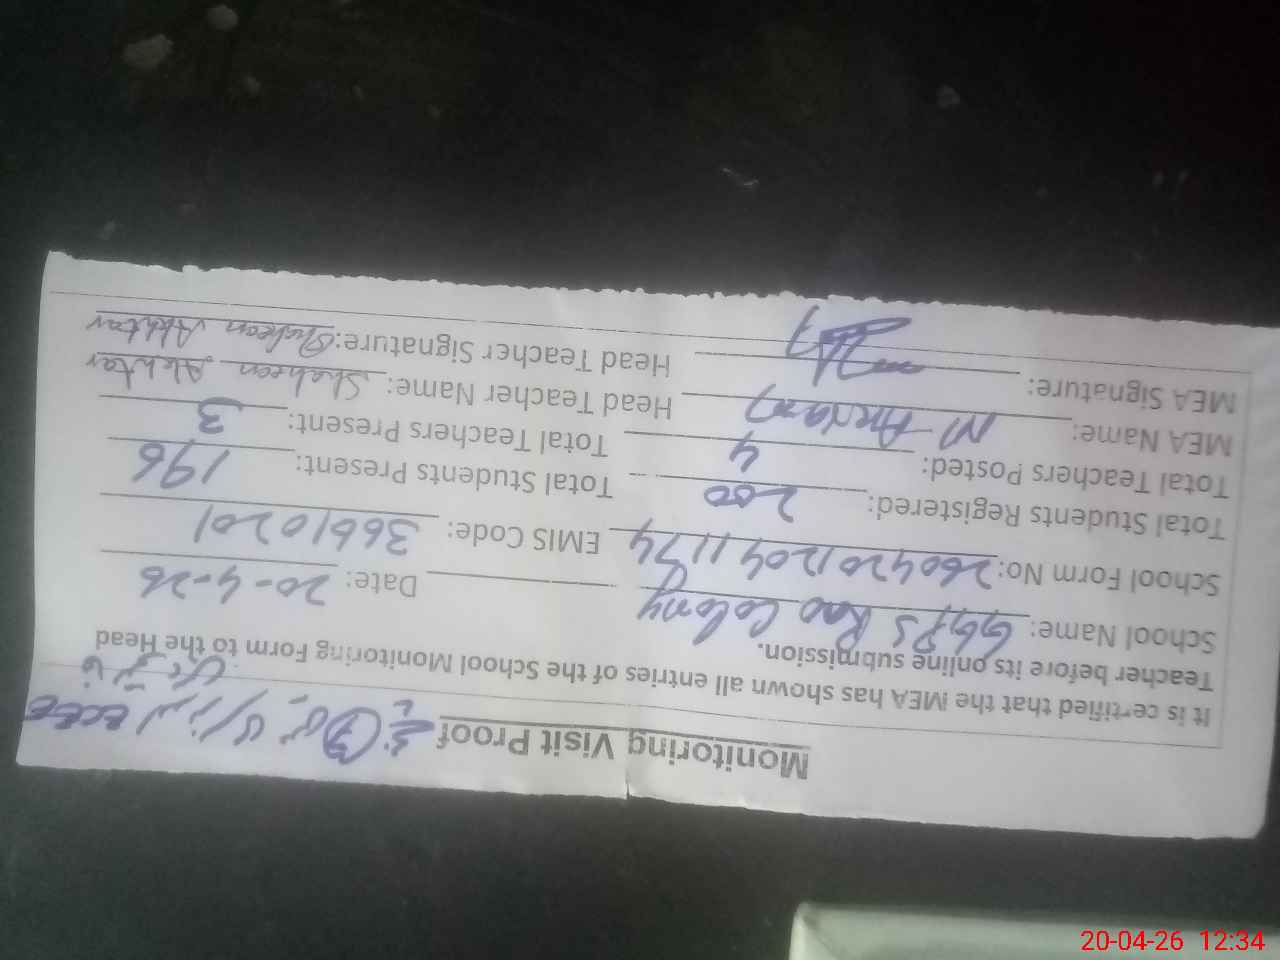 Monitoring Visit Proof
It is certified that the MEA has shown all entries of the School Monitoring Form to the Head
Teacher before its online submission.
School Name: GGPS Rao Colony Date: 20-4-26
School Form No: 2604201204 1174 EMIS Code: 36610201
Total Students Registered: 200 Total Students Present: 196
Total Teachers Posted: 4 Total Teachers Present: 3
MEA Name: M Head Teacher Name: Shaheen Akhtar
MEA Signature: Head Teacher Signature: Shaheen Akhtar
20-04-26 12:34